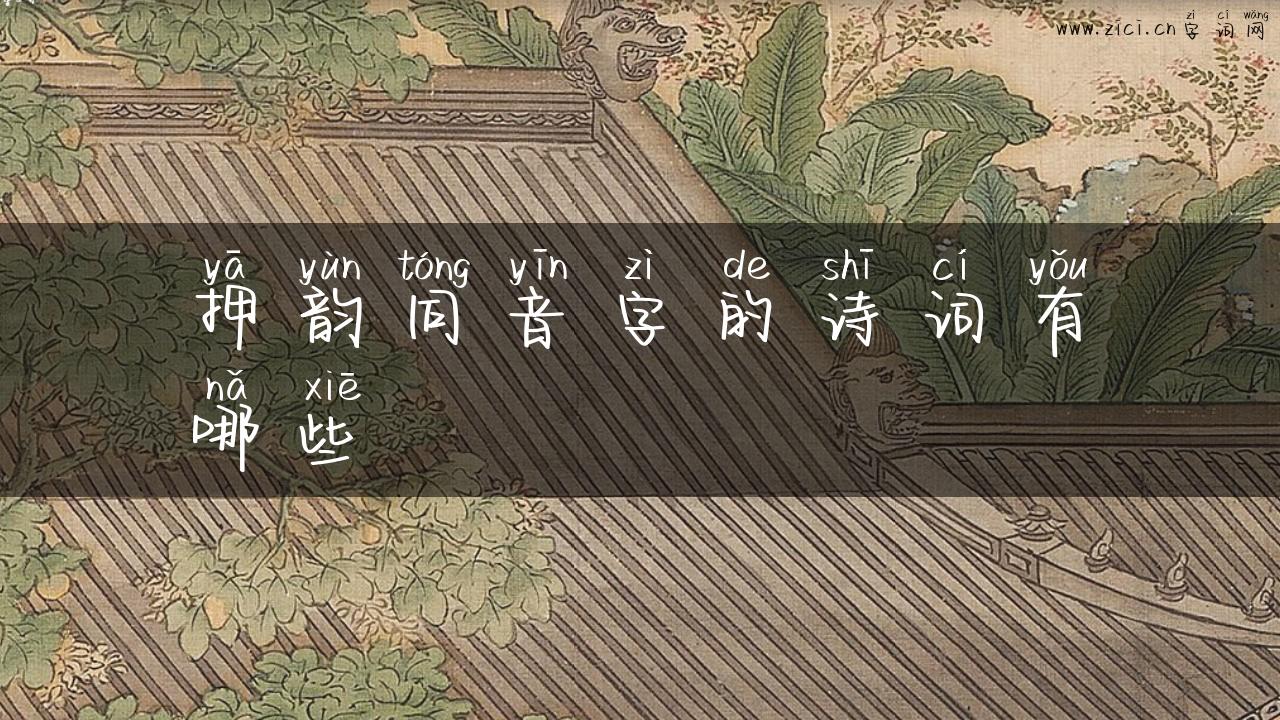 zì cí wǎng
www.zici.cn 字词网
yā yùn tóng yīn zì de shī cí yǒu
押韵同音字的诗词有
nǎ xiē
哪些